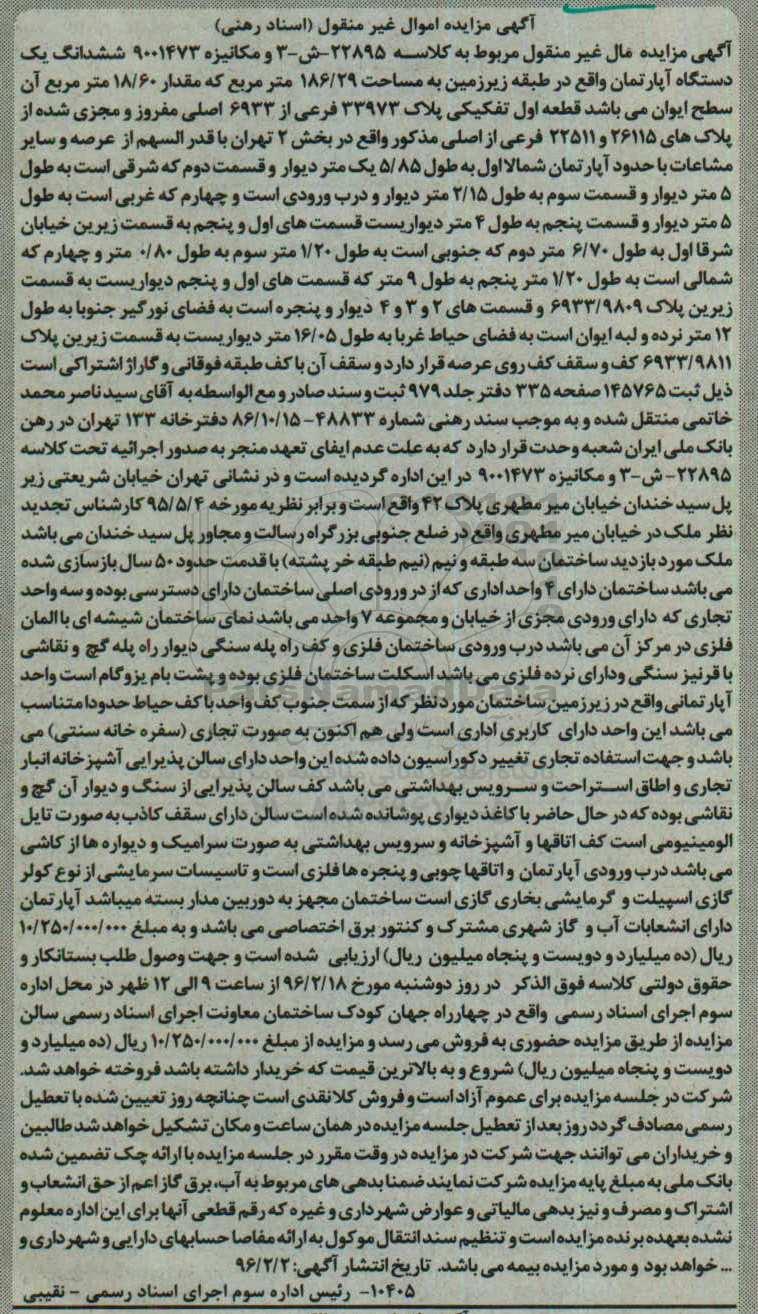 آگهی مزایده اموال غیر منقول (اسناد رهنی)
آگهی مزایده مال غیر منقول مربوط به کلاسه ۲۲۸۹۵-ش-۳ و مکانیزه ۹۰۰۱۴۷۳ ششدانگ یک
دستگاه آپارتمان واقع در طبقه زیرزمین به مساحت ۱۸۶/۲۹ متر مربع که مقدار ۱۸/۶۰ متر مربع آن
سطح ایوان می باشد قطعه اول تفکیکی پلاک ۳۳۹۷۳ فرعی از ۶۹۳۳ اصلی مفروز و مجزی شده از
پلاک های ۲۶۱۱۵ و ۲۲۵۱۱ فرعی از اصلی مذکور واقع در بخش ۲ تهران با قدر السهم از عرصه و سایر
مشاعات با حدود آپارتمان شمالا اول به طول ۵/۸۵ یک متر دیوار و قسمت دوم که شرقی است به طول
۵ متر دیوار و قسمت سوم به طول ۲/۱۵ متر دیوار و درب ورودی است و چهارم که غربی است به طول
۵ متر دیوار و قسمت پنجم به طول ۴ متر دیواریست قسمت های اول و پنجم به قسمت زیرین خیابان
شرقا اول به طول ۶/۷۰ متر دوم که جنوبی است به طول ۱/۲۰ متر سوم به طول ۰/۸۰ متر و چهارم که
شمالی است به طول ۱/۲۰ متر پنجم به طول ۹ متر که قسمت های اول و پنجم دیواریست به قسمت
زیرین پلاک ۶۹۳۳/۹۸۰۹ و قسمت های ۲ و ۳ و ۴ دیوار و پنجره است به فضای نورگیر جنوبا به طول
۱۲ متر نرده و لبه ایوان است به فضای حیاط غربا به طول ۱۶/۰۵ متر دیواریست به قسمت زیرین پلاک
۶۹۳۳/۹۸۱۱ کف و سقف کف روی عرصه قرار دارد و سقف آن با کف طبقه فوقانی و گاراژ اشتراکی است
ذیل ثبت ۱۴۵۷۶۵ صفحه ۳۳۵ دفتر جلد ۹۷۹ ثبت و سند صادر و مع الواسطه به آقای سید ناصر محمد
خاتمی منتقل شده و به موجب سند رهنی شماره ۴۸۸۳۳-۸۶/۱۰/۱۵ دفترخانه ۱۳۳ تهران در رهن
بانک ملی ایران شعبه وحدت قرار دارد که به علت عدم ایفای تعهد منجر به صدور اجرائیه تحت کلاسه
۲۲۸۹۵-ش-۳ و مکانیزه ۹۰۰۱۴۷۳ در این اداره گردیده است و در نشانی تهران خیابان شریعتی زیر
پل سید خندان خیابان میر مطهری پلاک ۴۲ واقع است و برابر نظریه مورخه ۹۵/۵/۴ کارشناس تجدید
نظر ملک در خیابان میر مطهری واقع در ضلع جنوبی بزرگراه رسالت و مجاور پل سید خندان می باشد
ملک مورد بازدید ساختمان سه طبقه و نیم (نیم طبقه خر پشته) با قدمت حدود ۵۰ سال بازسازی شده
می باشد ساختمان دارای ۴ واحد اداری که از در ورودی اصلی ساختمان دارای دسترسی بوده و سه واحد
تجاری که دارای ورودی مجزی از خیابان و مجموعه ۷ واحد می باشد نمای ساختمان شیشه ای با المان
فلزی در مرکز آن می باشد درب ورودی ساختمان فلزی و کف راه پله سنگی دیوار راه پله گچ و نقاشی
با قرنیز سنگی ودارای نرده فلزی می باشد اسکلت ساختمان فلزی بوده و پشت بام یزوگام است واحد
آپارتمانی واقع در زیرزمین ساختمان مورد نظر که از سمت جنوب کف واحد با کف حیاط حدودا متناسب
می باشد این واحد دارای کاربری اداری است ولی هم اکنون به صورت تجاری (سفره خانه سنتی) می
باشد و جهت استفاده تجاری تغییر دکوراسیون داده شده این واحد دارای سالن پذیرایی آشپزخانه انبار
تجاری و اطاق استراحت و سرویس بهداشتی می باشد کف سالن پذیرایی از سنگ و دیوار آن گچ و
نقاشی بوده که در حال حاضر با کاغذ دیواری پوشانده شده است سالن دارای سقف کاذب به صورت تایل
الومینیومی است کف اتاقها و آشپزخانه و سرویس بهداشتی به صورت سرامیک و دیواره ها از کاشی
می باشد درب ورودی آپارتمان و اتاقها چوبی و پنجره ها فلزی است و تاسیسات سرمایشی از نوع کولر
گازی اسپیلت و گرمایشی بخاری گازی است ساختمان مجهز به دوربین مدار بسته میباشد آپارتمان
دارای انشعابات آب و گاز شهری مشترک و کنتور برق اختصاصی می باشد و به مبلغ ۱۰/۲۵۰/۰۰۰/۰۰۰
ریال (ده میلیارد و دویست و پنجاه میلیون ریال) ارزیابی شده است و جهت وصول طلب بستانکار و
حقوق دولتی کلاسه فوق الذکر در روز دوشنبه مورخ ۹۶/۲/۱۸ از ساعت ۹ الی ۱۲ ظهر در محل اداره
سوم اجرای اسناد رسمی واقع در چهارراه جهان کودک ساختمان معاونت اجرای اسناد رسمی سالن
مزایده از طریق مزایده حضوری به فروش می رسد و مزایده از مبلغ ۱۰/۲۵۰/۰۰۰/۰۰۰ ریال (ده میلیارد و
دویست و پنجاه میلیون ریال) شروع و به بالاترین قیمت که خریدار داشته باشد فروخته خواهد شد.
شرکت در جلسه مزایده برای عموم آزاد است و فروش کلا نقدی است چنانچه روز تعیین شده با تعطیل
رسمی مصادف گردد روز بعد از تعطیل جلسه مزایده در همان ساعت و مکان تشکیل خواهد شد طالبین
و خریداران می توانند جهت شرکت در مزایده در وقت مقرر در جلسه مزایده با ارائه چک تضمین شده
بانک ملی به مبلغ پایه مزایده شرکت نمایند ضمنا بدهی های مربوط به آب، برق گاز اعم از حق انشعاب و
اشتراک و مصرف و نیز بدهی مالیاتی و عوارض شهرداری و غیره که رقم قطعی آنها برای این اداره معلوم
نشده بعهده برنده مزایده است و تنظیم سند انتقال موکول به ارائه مفاصا حسابهای دارایی و شهرداری و
... خواهد بود و مورد مزایده بیمه می باشد. تاریخ انتشار آگهی: ۹۶/۲/۲
۱۰۴۰۵- رئیس اداره سوم اجرای اسناد رسمی - نقیبی